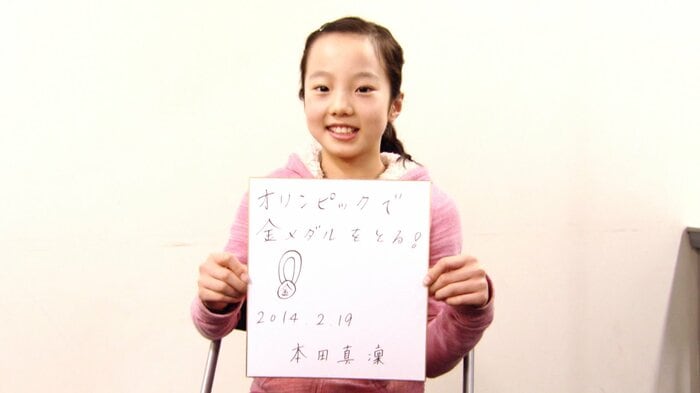 オリンピックで
金メダルをとる!
金
2014.2.19
本田真凜